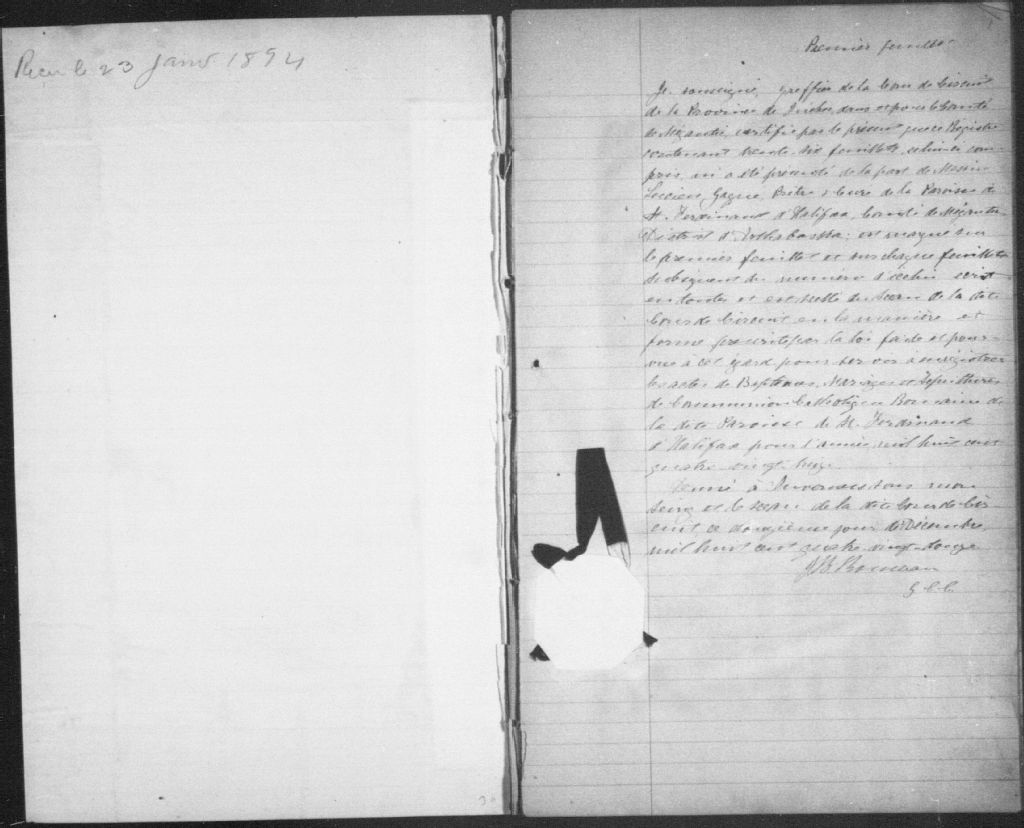 Recu le 23 Janv 1894
Premier feuillet
Je, soussigné, greffier de la Cour de Circuit
de la Province de Québec, dans et pour le Comté
de Mégantic, certifie par le présent que ce Registre
contenant trente-six feuillets, celui-ci com-
pris, m'a été présenté de la part de Messire
Lucien Gagné, Prêtre & Curé de la Paroisse de
St. Ferdinand d'Halifax, Comté de Mégantic,
District d'Arthabaska; est marqué sur
le premier feuillet et sur chaque feuillet
subséquent du numéro d'icelui écrit
en toutes et est scellé du Sceau de la dite
Cour de Circuit en la manière et
forme prescrites par la loi faite et pour-
vue à cet égard pour servir à enregistrer
les actes de Baptêmes, Mariages et Sépultures
de Communion Catholique Romaine de
la dite Paroisse de St. Ferdinand
d'Halifax pour l'année mil huit cent
quatre-vingt-treize.
Donné à Inverness sous mon
seing et le sceau de la dite Cour de Cir-
cuit ce douzième jour de Décembre
mil huit cent quatre-vingt-douze
G. C. C.